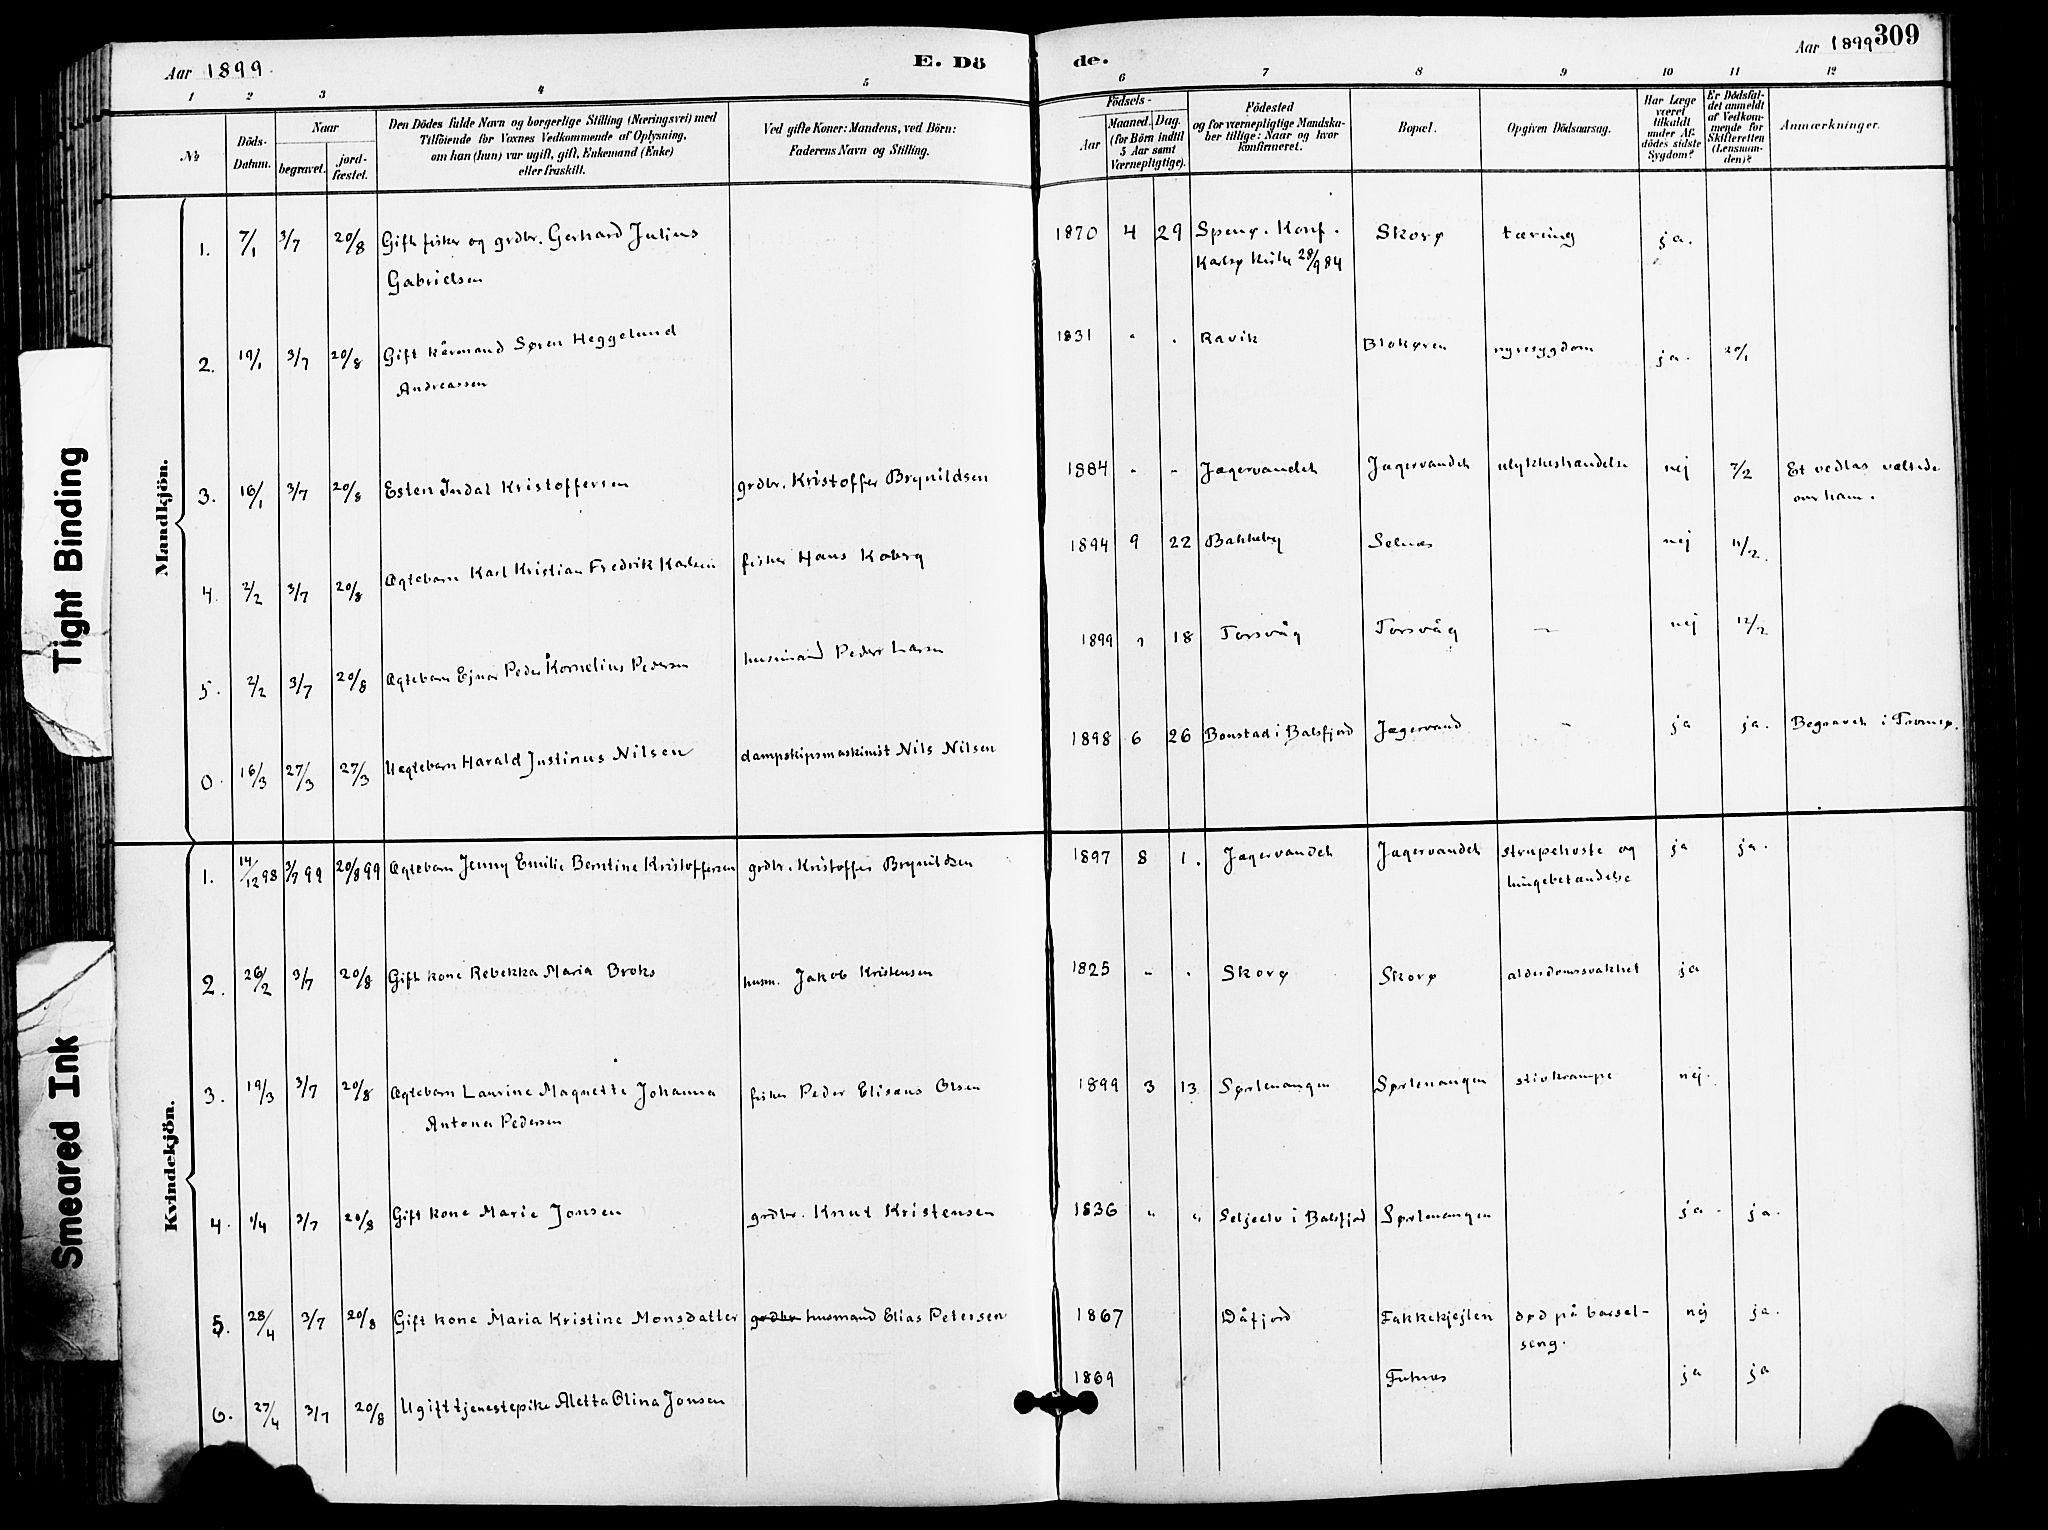 Aar 1899.
E. Dö
de.
Aar 1899
309
1 2 3 4 5 6 7 8 9 10 11 12
№
Döds-
Datum.
Naar
begravet.
jord-
fæstet.
Den Dödes fulde Navn og borgerlige Stilling (Næringsvei) med
Tilföiende for Voxnes Vedkommende af Oplysning,
om han (hun) var ugift, gift, Enkemand (Enke)
eller fraskilt.
Ved gifte Koner: Mandens, ved Börn:
Faderens Navn og Stilling.
Födsels-
Aar
Maaned. Dag.
(for Börn indtil
5 Aar samt
Værnepligtige).
Födested
og for værnepligtige Mandska-
ber tillige: Naar og hvor
konfirmeret.
Bopæl.
Opgiven Dödsaarsag.
Har Læge
været
tilkaldt
under Af-
dödes sidste
Sygdom?
Er Dödsfal-
det anmeldt
af Vedkom-
mende for
Skifteretten
(Lensman-
den)?
Anmærkninger.
Mandkjön.
1. 7/1 3/7 20/8 Gift fisker og grdbr. Gerhard Julius 1870 4 29 Spenø. Konf. Skorø tæring ja.
Gabrielsen Karlsø Kirke 28/9 84
2. 19/1 3/7 20/8 Gift kårmand Søren Heggelund 1831 " " Ravik nyresygdom ja. 20/1
Andreassen
3. 16/1 3/7 20/8 Esten Indal Kristoffersen grdbr. Kristoffer Brynildsen 1884 " " Jægervandet Jægervandet ulykkeshændelse nej 7/2 Et vedlas væltede
over ham.
4. 2/2 3/7 20/8 Ægtebarn Karl Kristian Fredrik Karlsen fisker Hans Koberg 1894 9 22 Bakkeby Selnæs nej 11/2.
5. 2/2 3/7 20/8 Ægtebarn Ejnar Peder Kornelius Pedersen husmand Peder Larsen 1899 1 18 Torsvåg Torsvåg — nej 12/2
0. 16/3 27/3 27/3 Uægtebarn Harald Justinus Nilsen dampskipsmaskinist Nils Nilsen 1898 6 26 Bonstad i Balsfjord Jægervand — ja ja. Begravet i Tromsø.
Kvindekjön.
1. 14/12 98 3/7 99 20/8 99 Ægtebarn Jenny Emilie Berntine Kristoffersen grdbr. Kristoffer Brynildsen 1897 8 1. Jægervandet Jægervandet strupehoste og ja ja.
lungebetændelse
2. 26/2 3/7 20/8 Gift kone Rebekka Maria Broks husm. Jakob Kristensen 1825 " " Skorø Skorø alderdomssvakhet ja
3. 19/3 3/7 20/8 Ægtebarn Laurine Magnette Johanna fisker Peder Elisæus Olsen 1899 3 13 Sørlenangen Sørlenangen stivkrampe nej.
Antona Pedersen
4. 1/4 3/7 20/8 Gift kone Marie Jonsen grdbr. Knut Kristensen 1836 " " Seljeelv i Balsfjord Sørlenangen ja. ja.
5. 28/4 3/7 20/8 Gift kone Maria Kristine Monsdatter grdbr husmand Elias Petersen 1867 Dåfjord Fakkekjejlen død på barsel- nej ja.
seng.
6. 27/4 3/7 20/8 Ugift tjenestepike Aletta Olina Jonsen 1869 Futnæs ja ja
Tight Binding
Smeared Ink